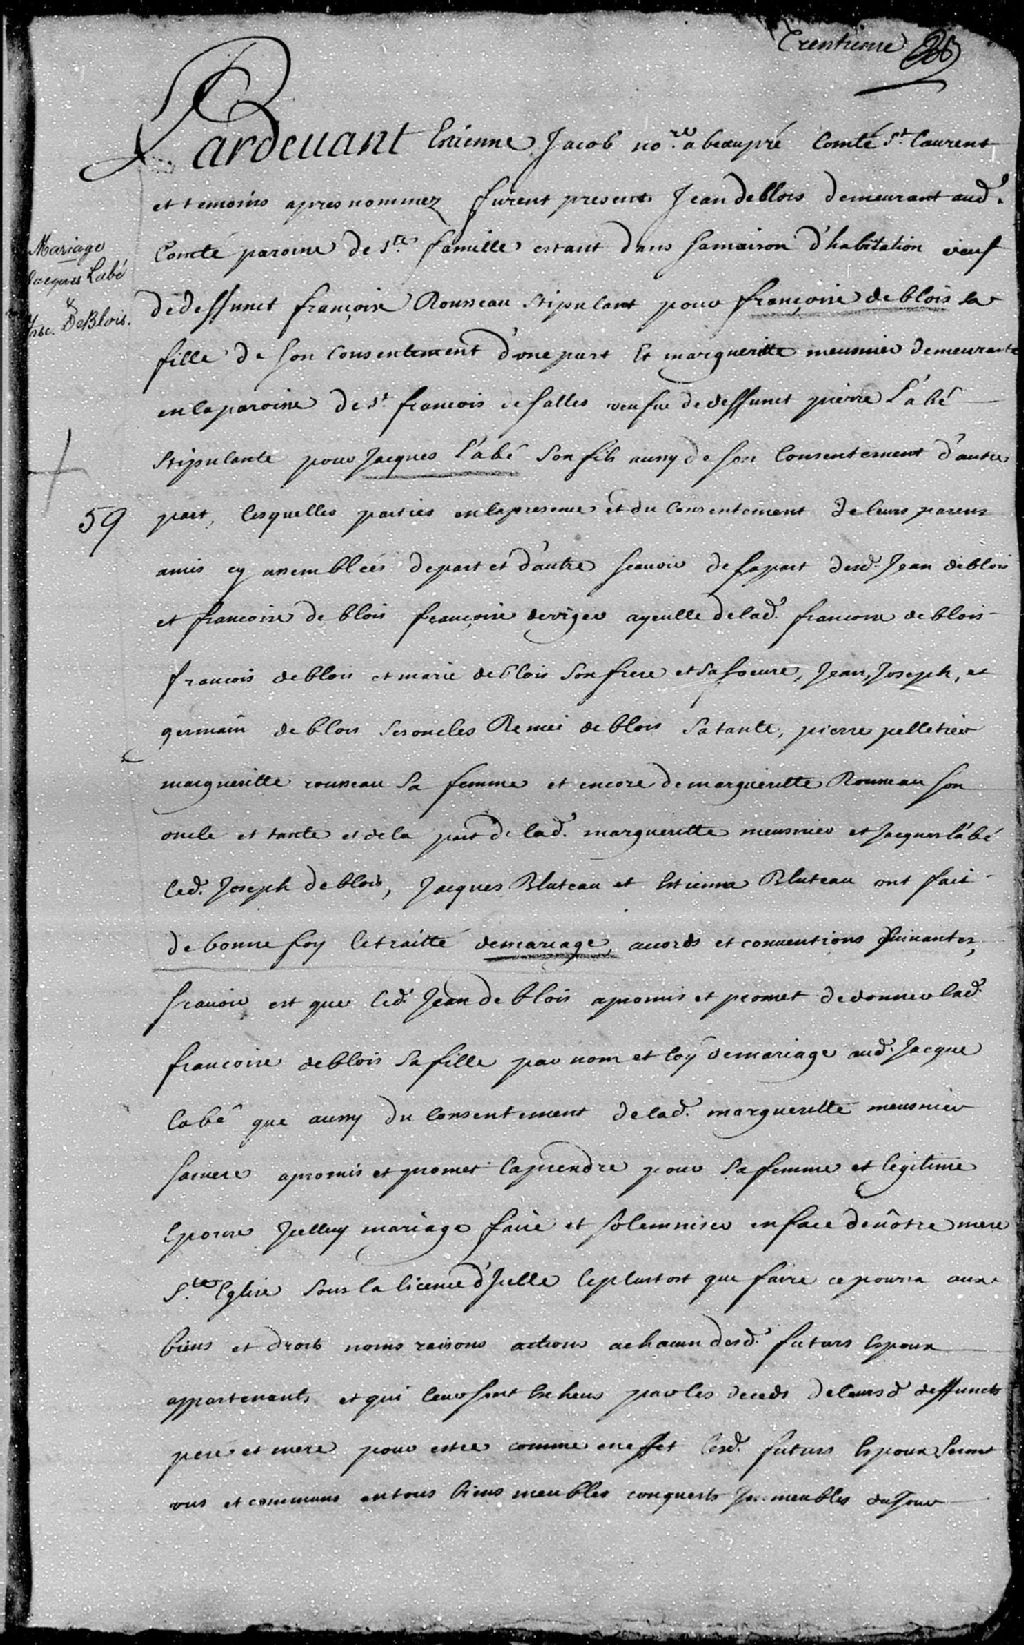 Trentieme
Pardevant Estienne Jacob no.re a beaupré Comté St. Laurent
et temoins apres nommez furent presents Jean deblois demeurant aud.
Comté paroisse de Ste. famille estant dans sa maison d'habitation veuf
de deffunct françoise Rousseau stipulant pour françoise deblois sa
fille de son consentement d'une part Et margueritte meusnier demeurante
en la paroisse de St. francois de salles veufve de deffunct pierre L'abé
stipulante pour Jacques L'abé son fils aussy de son Consentement d'autre
part, lesquelles parties en la presence et du consentement de leurs parens
amis cy assemblées de part et d'autre scavoir de la part desd. Jean deblois
et francoise de blois françoise ayeulle de lad. francoise de blois
francois deblois et marie deblois son frere et sa soeure, Jean, Joseph, et
germain de blois ses oncles Remie de blois sa tante, pierre pelletier
margueritte rousseau sa femme et encore de margueritte Rousseau son
oncle et tante et de la part de lad. margueritte meusnier et Jacques l'abé
led. Joseph de blois, Jacques Bluteau et Estienne Bluteau ont fait
de bonne foy le traitté de mariage, accords et conventions suivantes,
scavoir est que led. Jean de blois a promis et promet de donner lad.
francoise deblois sa fille par nom et loy de mariage aud. Jacque
labé que aussy du consentement de lad. margueritte meusnier
sa mere a promis et promet la prendre pour sa femme et legitime
Epouse Jcelluy mariage faire et solemniser en face de nôtre mere
Ste. Eglise sous la licence d'Jcelle le plustost que faire ce poura aux
biens et droits noms raisons actions a chacun desd. futurs Epoux
appartenants et qui leur sont Echeus par les deceds de leursd. deffuncts
pere et mere pour estre comme en effet lesd. futurs Epoux seront
uns et communs en tous biens meubles conquests Jmmeubles du Jour
Mariage
Jacques Labé
&
DeBlois.
59